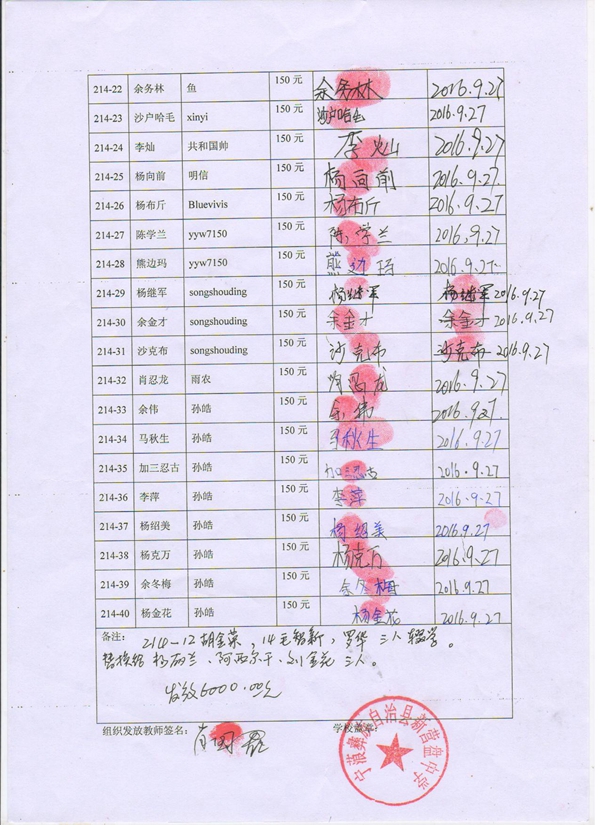 214-22 余务林 鱼 150 元 余务林 2016.9.27
214-23 沙户哈毛 xinyi 150 元 沙户哈毛 2016.9.27
214-24 李灿 共和国帅 150 元 李灿 2016.9.27
214-25 杨向前 明信 150 元 杨向前 2016.9.27
214-26 杨布斤 Bluevivis 150 元 杨布斤 2016.9.27
214-27 陈学兰 yyw7150 150 元 陈学兰 2016.9.27
214-28 熊边玛 yyw7150 150 元 熊边玛 2016.9.27
214-29 杨继军 songshouding 150 元 杨继军 杨继军 2016.9.27
214-30 余金才 songshouding 150 元 余金才 余金才 2016.9.27
214-31 沙克布 songshouding 150 元 沙克布 沙克布 2016.9.27
214-32 肖忍龙 雨农 150 元 肖忍龙 2016.9.27
214-33 余伟 孙皓 150 元 余伟 2016.9.27
214-34 马秋生 孙皓 150 元 马秋生 2016.9.27
214-35 加三忍古 孙皓 150 元 加忍古 2016.9.27
214-36 李萍 孙皓 150 元 李萍 2016.9.27
214-37 杨绍美 孙皓 150 元 杨绍美 2016.9.27
214-38 杨克万 孙皓 150 元 杨克万 2016.9.27
214-39 余冬梅 孙皓 150 元 余冬梅 2016.9.27
214-40 杨金花 孙皓 150 元 杨金花 2016.9.27
备注: 214-12 胡金菜, 14 毛 新, 罗华 三人辍学。
替换给 杨丽兰、阿西尔干、刘金花 三人。
发放6000.00元
组织发放教师签名: 肖国 学校盖章:
宁蒗彝族自治县新营盘中学